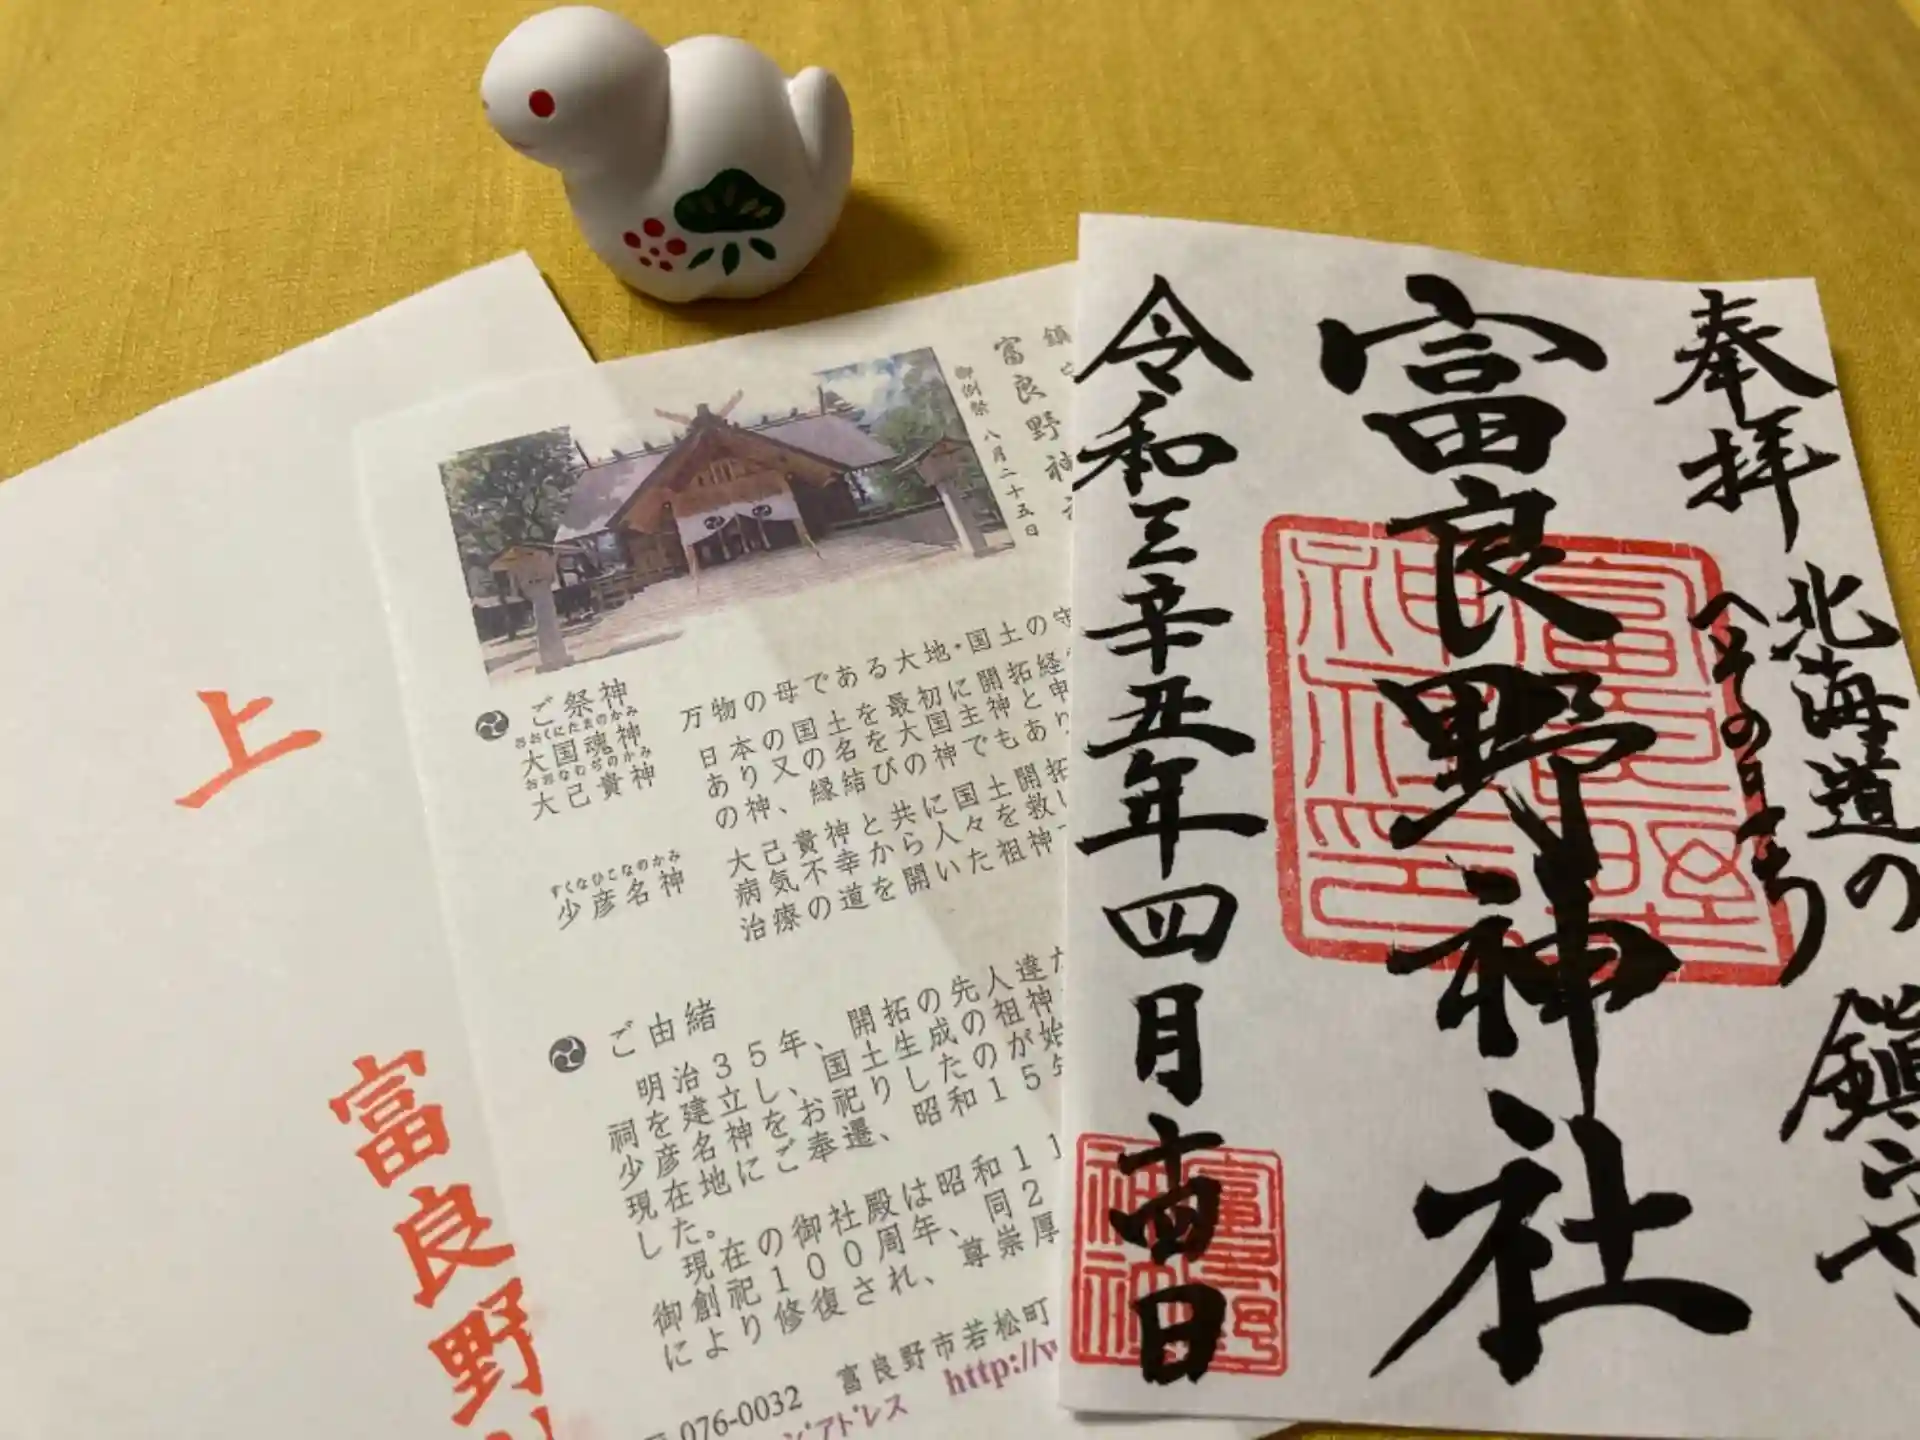 奉拝
北海道の
へそのまち
鎮守
富良野神社
令和三辛丑年四月吉日
富良野神社
御例祭 八月二十五日
ご祭神
おおくにたまのかみ
大国魂神
おおなむちのかみ
大己貴神
すくなひこなのかみ
少彦名神
万物の母である大地・国土の守
日本の国土を最初に開拓経
あり又の名を大国主神と申
の神、縁結びの神でもあり
大己貴神と共に国土開拓
病気不幸から人々を救い
治療の道を開いた祖神
ご由緒
明治35年、開拓の先人達
祠を建立し、国土生成の祖神
少彦名神をお祀りしたのが始
現在地にご奉遷、昭和15年
した。
現在の御社殿は昭和11
御創祀100周年、同2
により修復され、尊崇厚
076-0032 富良野市若松町
アドレス http://w
上
富良野